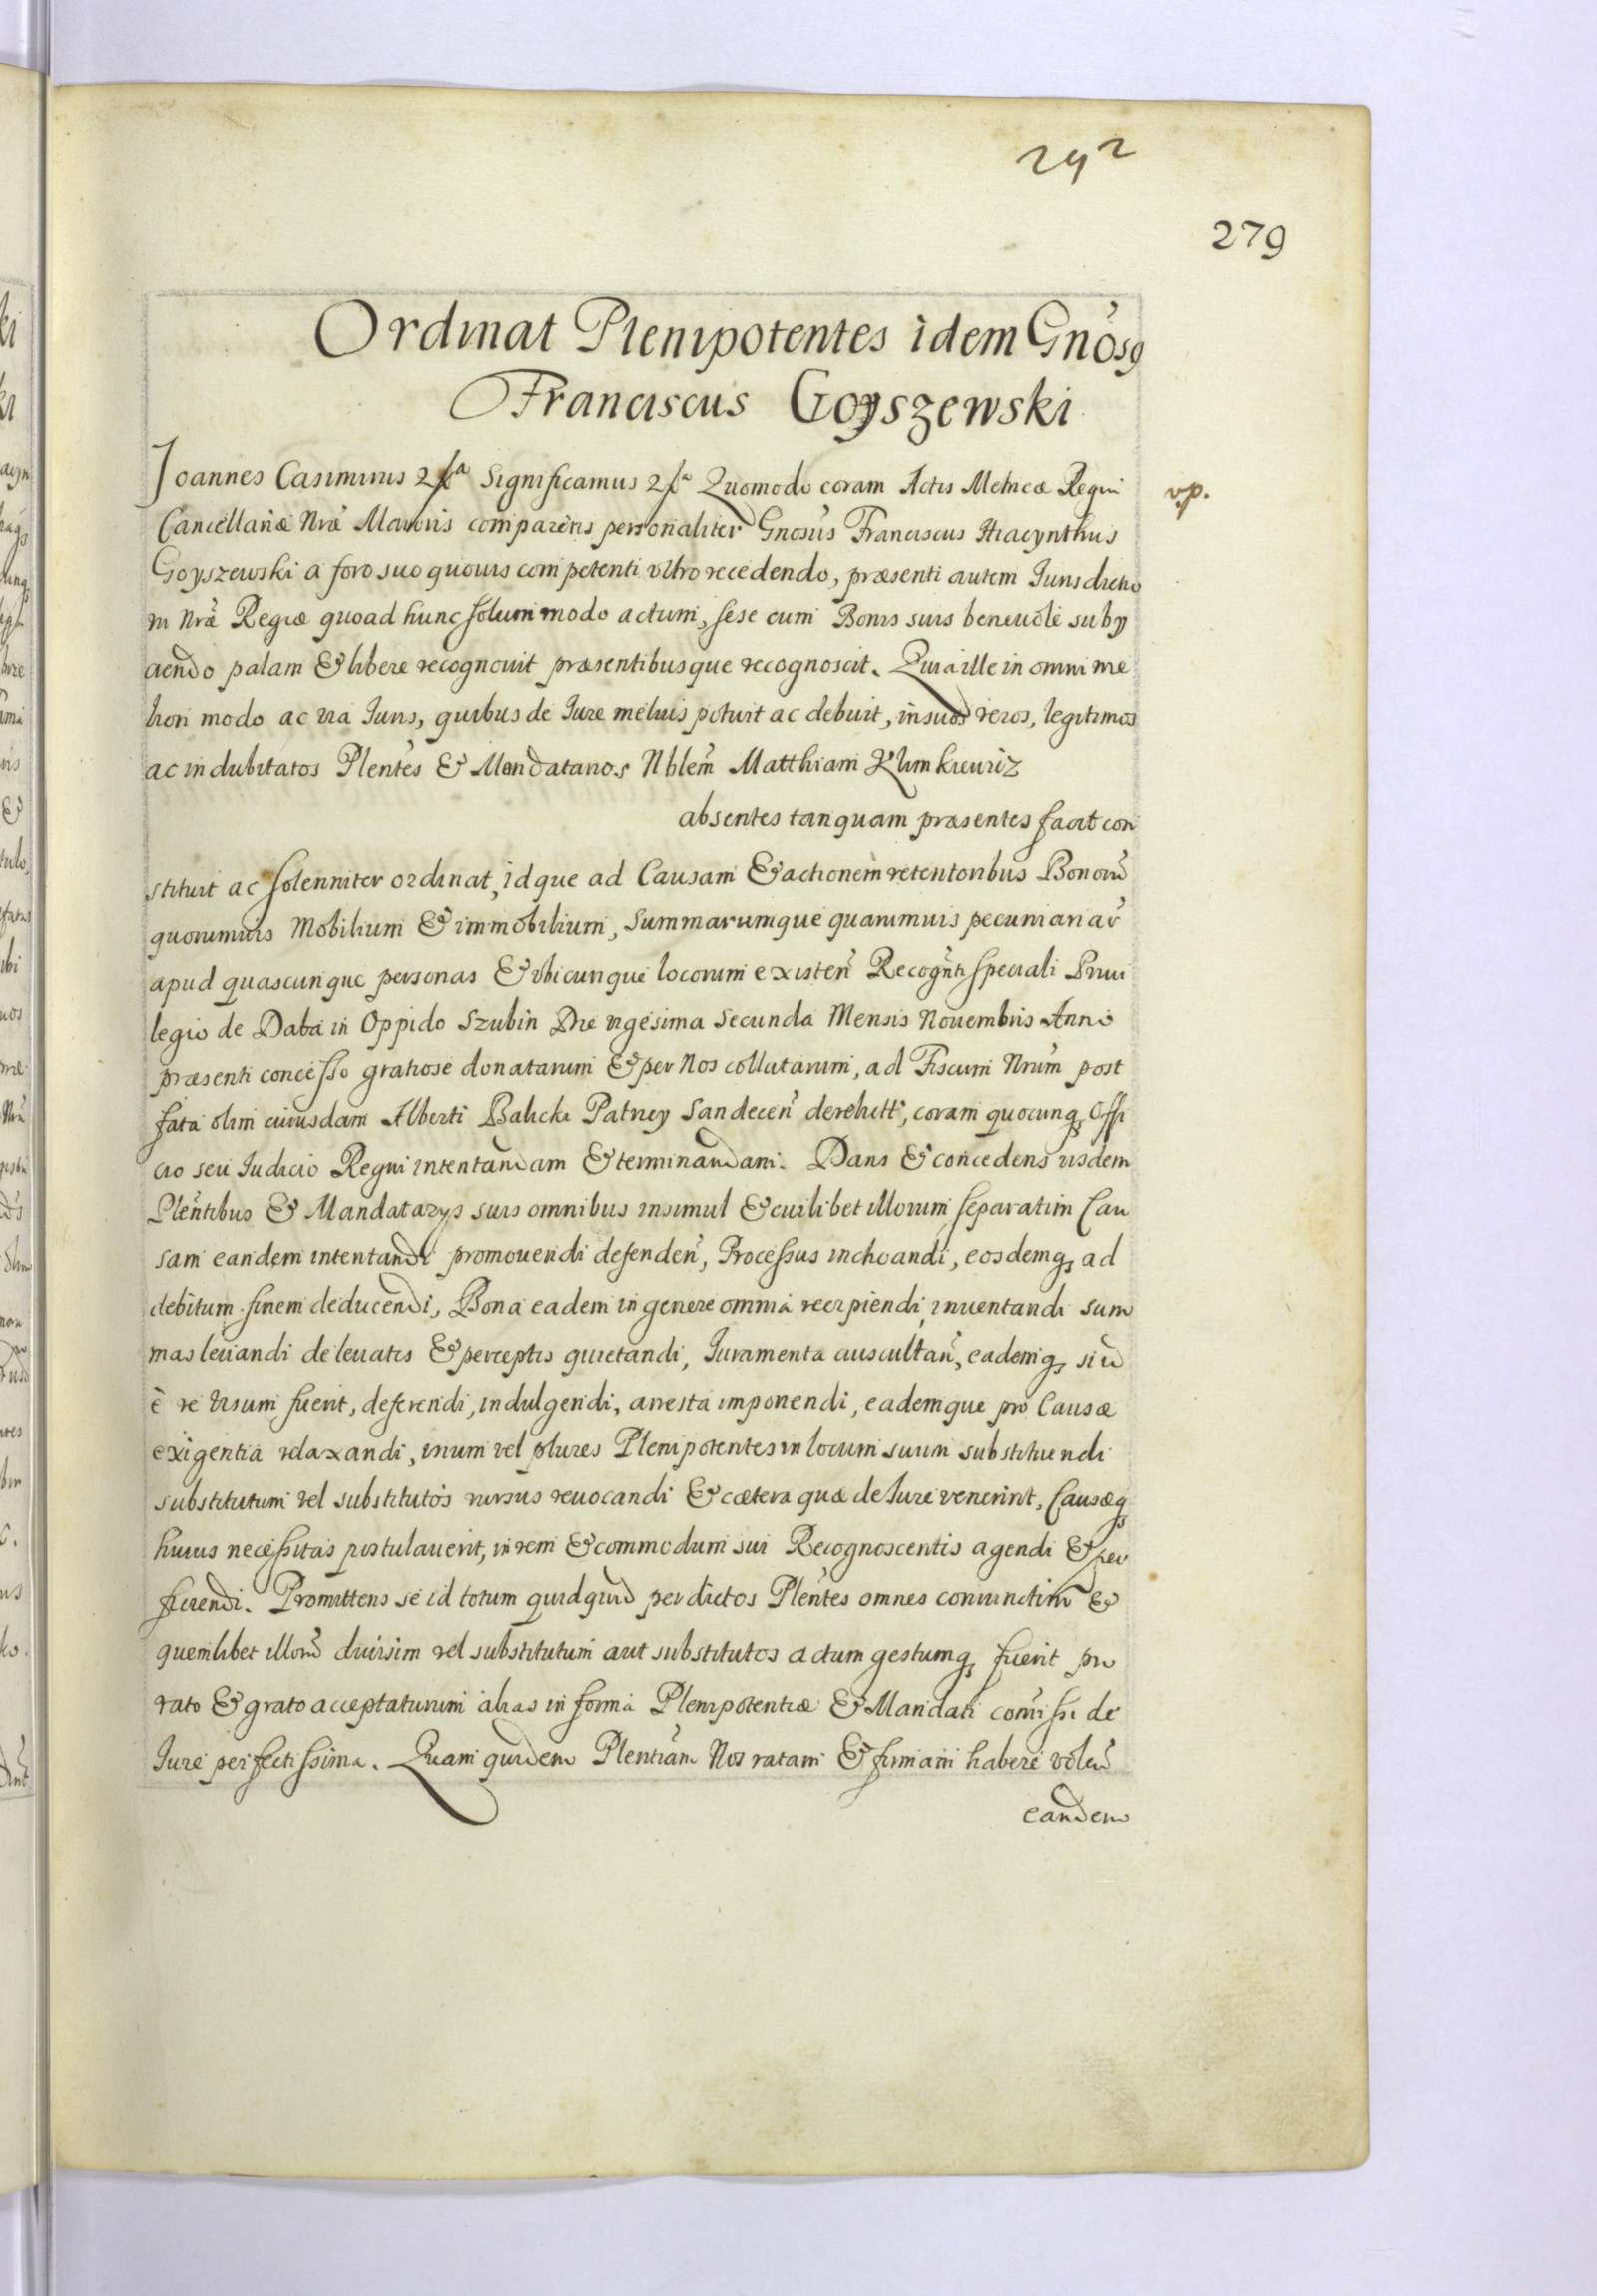 292
279
Ordinat Plenipotentes idem Gnosꝯ
Franciscus Goyszewski
Joannes Casimirus &ca Significamus &ca Quomodo coram Actis Metricæ Regni
vp.
Cancellariæ Nræ Maioris comparens personaliter Gnosus Franciscus Hiacynthus
Goyszewski a foro suo quouis competenti vltro recedendo, præsenti autem Jurisdictio
ni Nræ Regiæ quoad hunc solummodo actum, sese cum Bonis suis beneuole subÿ
ciendo palam & libere recognouit præsentibusque recognoscit. Quia ille in omni me
liori modo ac via Juris, quibus de Jure melius potuit ac debuit, in suos veros, legitimos
ac indubitatos Plentes & Mandatarios Nblem Matthiam Klimkiewiz
absentes tanquam præsentes facit con
stituit ac solenniter ordinat, idque ad Causam & actionem retentoribus Bonorũ
quorumuis Mobilium & immobilium, Summarumque quarumuis pecuniariar̃
apud quascunque personas & vbicunque locorum existeñ Recogñti speciali Priui
legio de Data in Oppido Szubin Die vigesima Secunda Mensis Nouembris Anno
præsenti concesso gratiose donatarum & per Nos collatarum, ad Fiscum Nrum post
fata olim cuiusdam Alberti Balicki Patricy Sandeceñ derelictt, coram quocunq, Offi
cio seu Iudicio Regni intentandam & terminandam. Dans & concedens iisdem
Plentibus & Mandatarys suis omnibus insimul & cuilibet illorum separatim Cau
sam eandem intentandi promouendi defendeñ, Processus inchoandi, eosdemq, ad
debitum finem deducendi, Bona eadem in genere omnia recipiendi, inuentandi sum
mas leuandi de leuatis & perceptis quietandi, Juramenta auscultañ, eademq, si ũ
è re visum fuerit, deferendi, indulgendi, arresta imponendi, eademque pro Causæ
exigentia relaxandi, vnum vel plures Plenipotentes in locum suum substituendi
substitutum vel substitutos rursus reuocandi & cætera quæ de Jure venerint, Causæq
huius necessitas postulauerit, in rem & commodum sui Recognoscentis agendi & per
ficiendi. Promittens se id totum quidquid per dictos Plentes omnes coniunctim &
quemlibet illorũ diuisim vel substitutum aut substitutos actum gestumq, fuerit pro
rato & grato acceptaturum alias in forma Plenipotentiæ & Mandati comissi de
Jure perfectissima. Quam quidem Plentiam Nos ratam & firmam habere voleñ
eandem